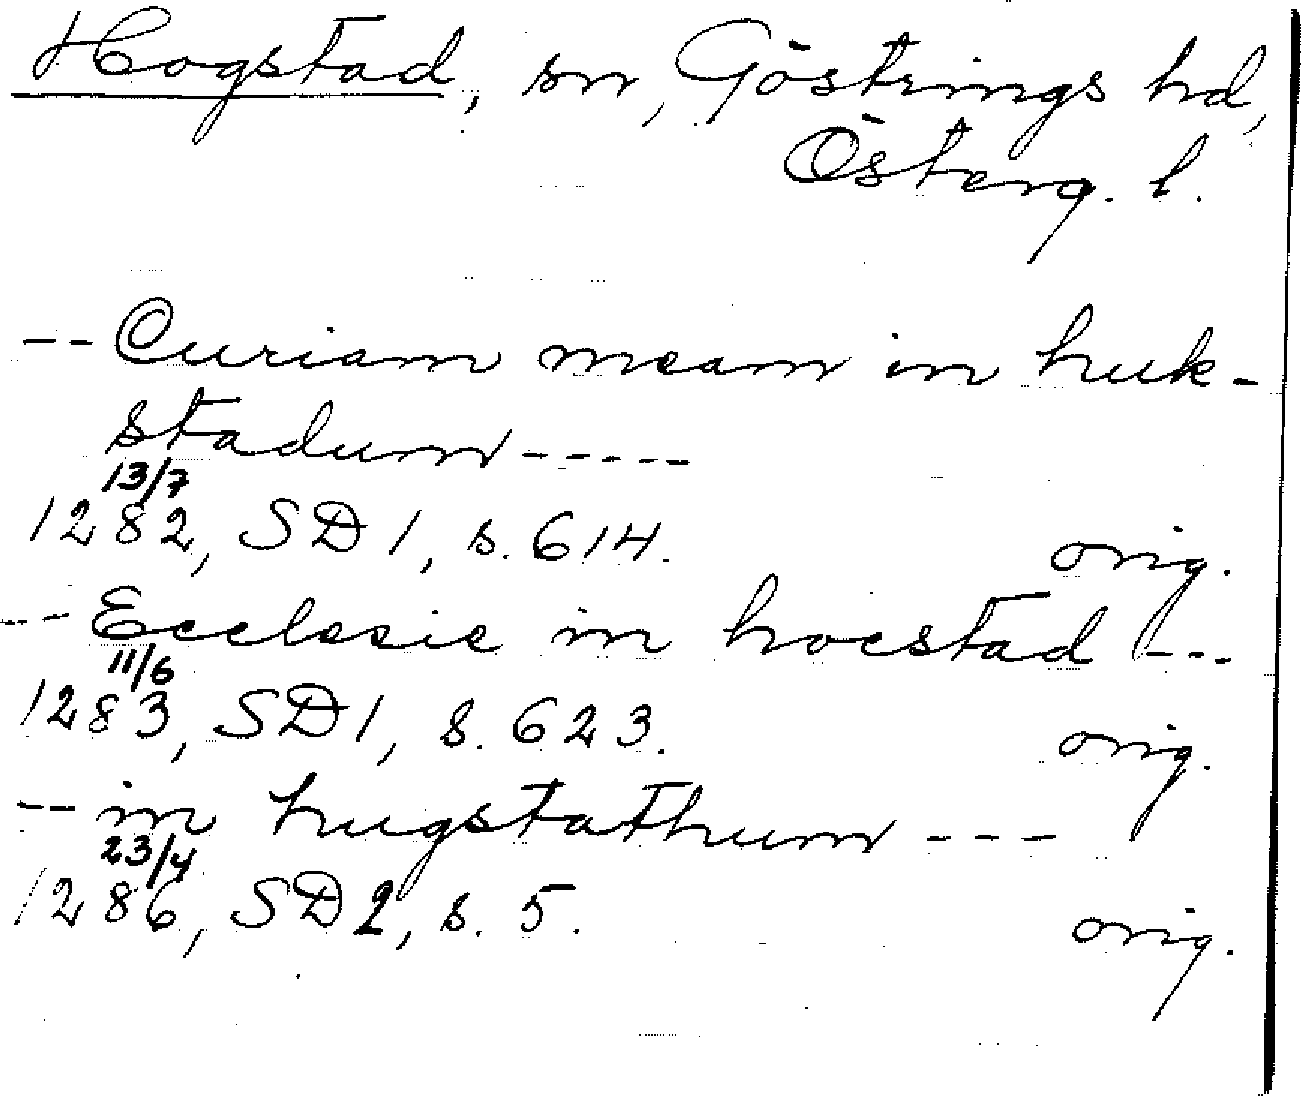 Hogstad, sn, Göstrings hd,
Österg. l.
-- Curiam meam in huk-
stadum -----
13/7
1282, SD 1, s. 614. orig.
--- Ecclesie in hocstad ---
11/6
1283, SD 1, s. 623. orig.
-- in hugstathum ---
23/4
1286, SD 2, s. 5. orig.